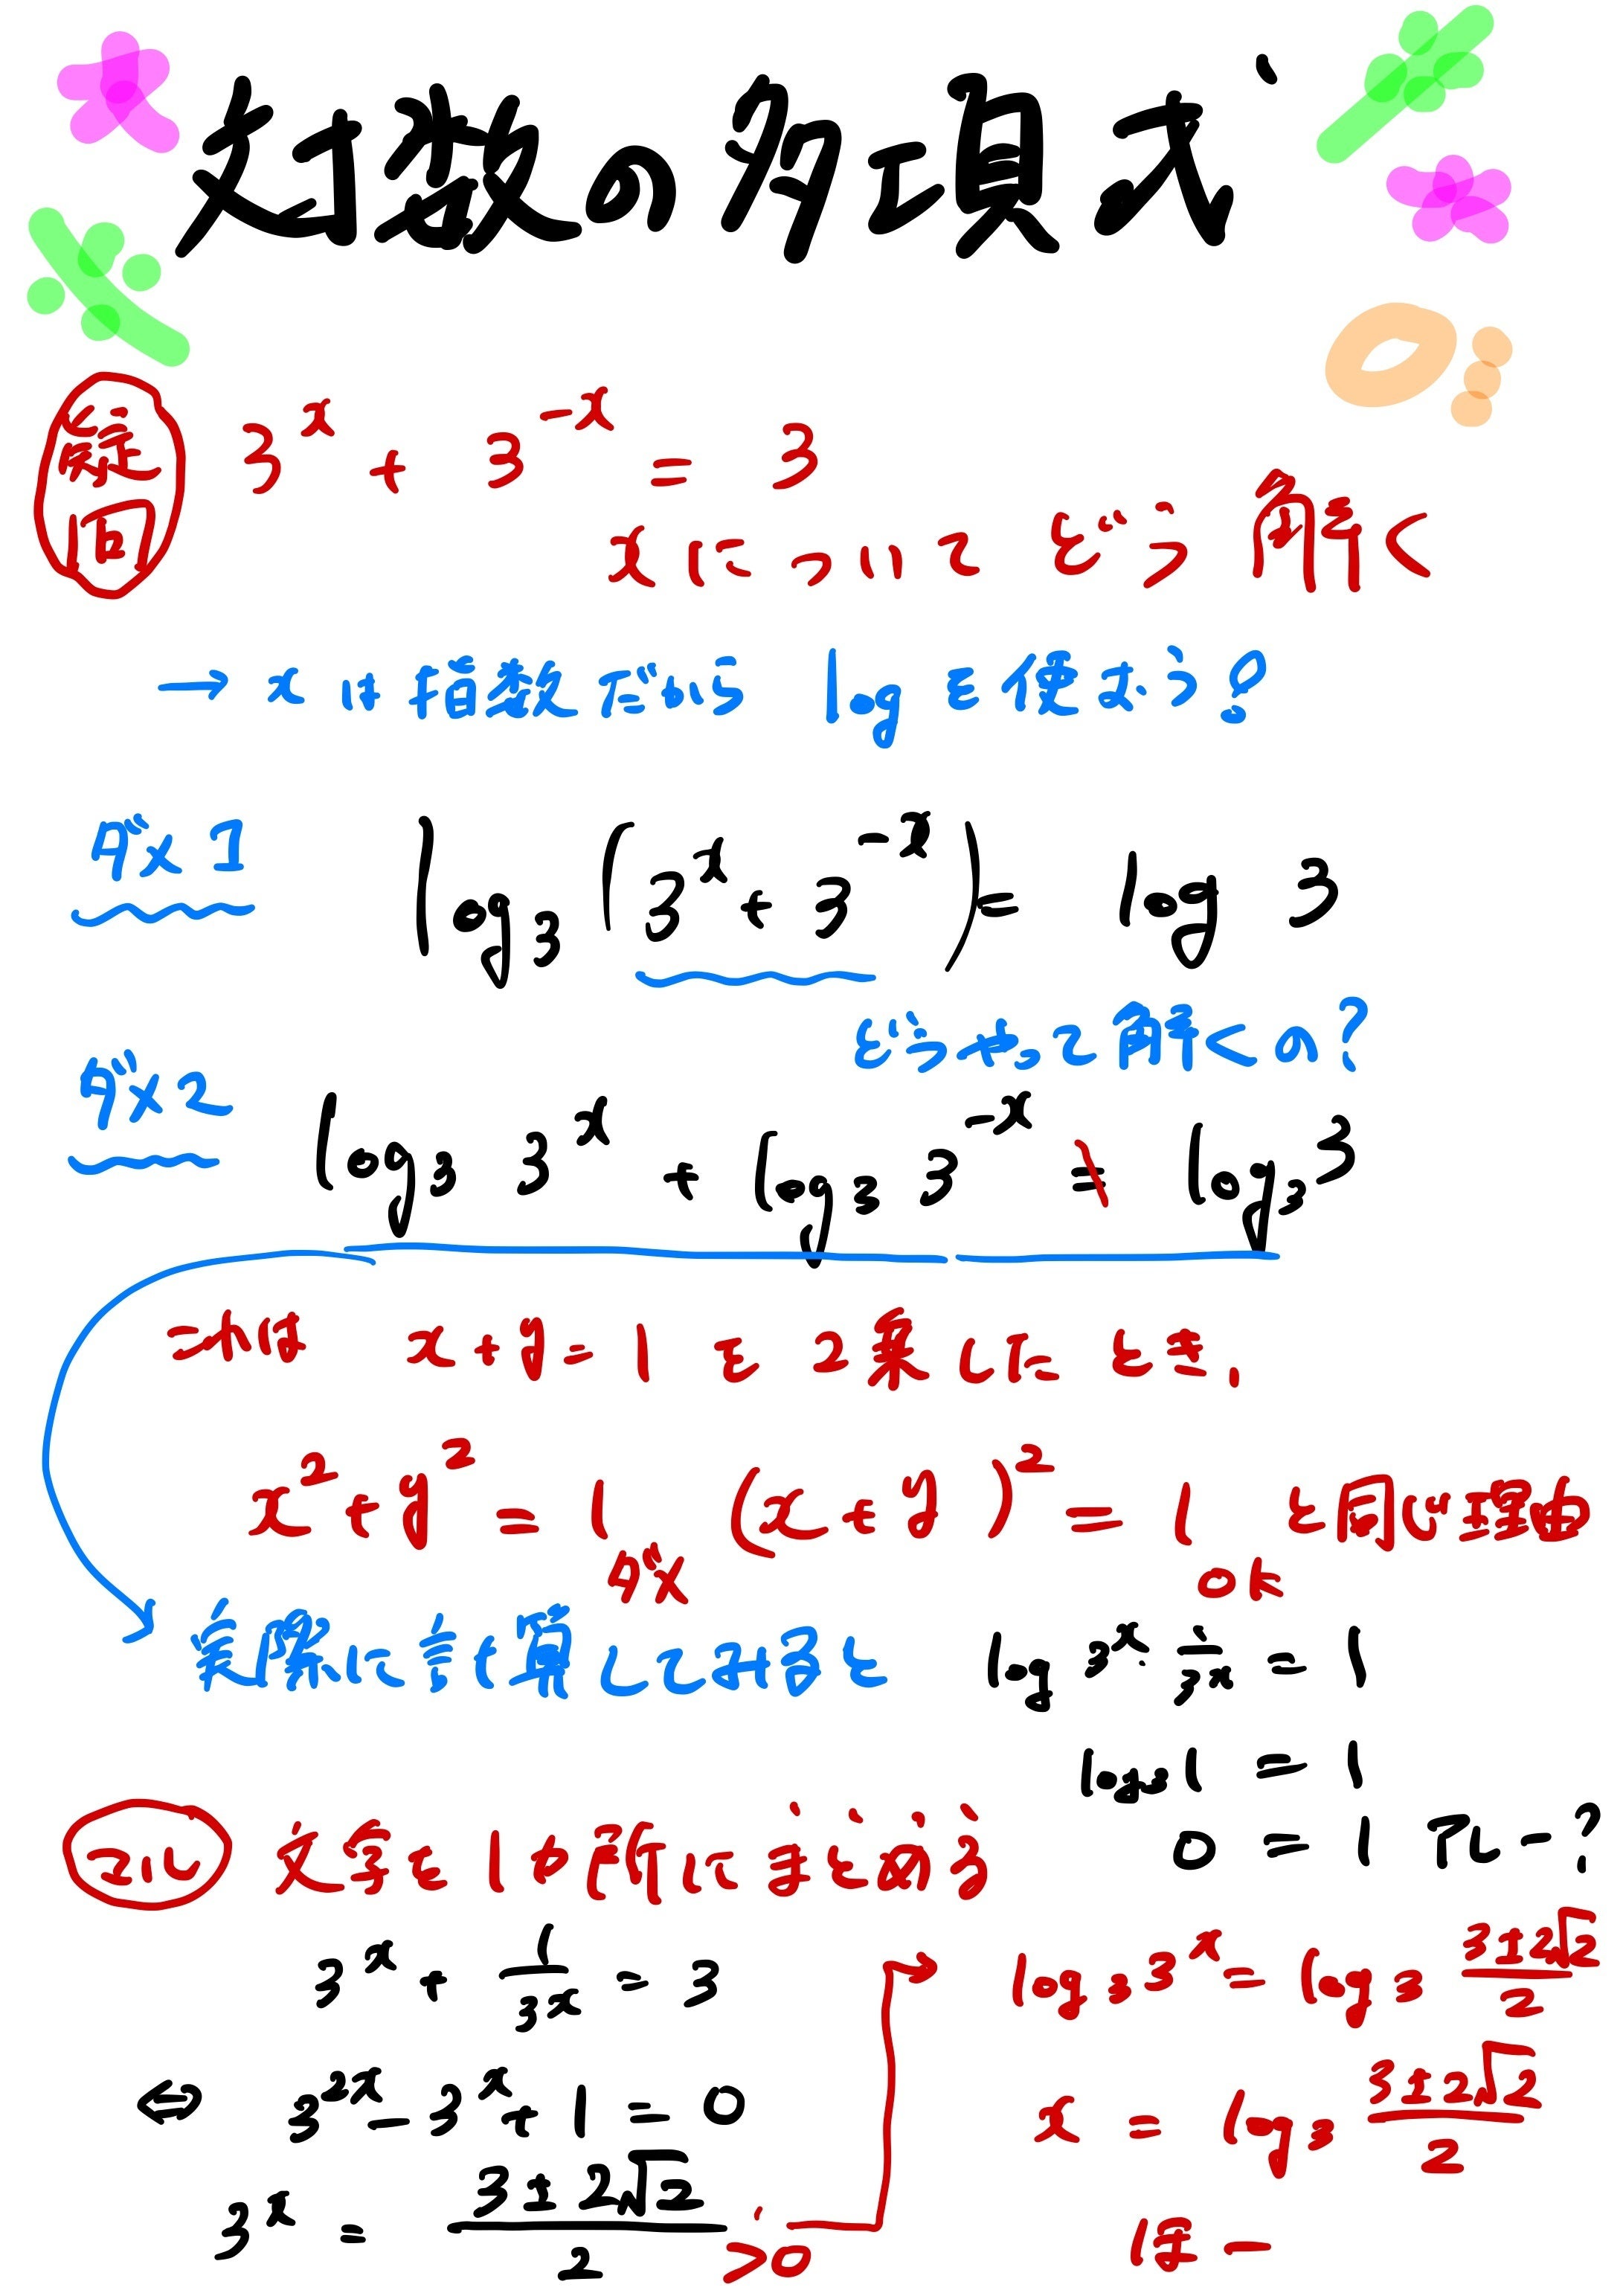 対数の多項式
疑問 3^x + 3^-x = 3
xについてどう解く
→ xは指数だから logを使おう?
ダメ1 log₃(3^x + 3^-x) = log 3
どうやって解くの?
ダメ2 log₃ 3^x + log₃ 3^-x ≠ log₃ 3
これは x+y=1 を 2乗したとき,
x²+y²=1 ダメ (x+y)²=1 OK と同じ理由
実際に計算してみると log 3^x・1/3^x = 1
log₃1 = 1
0 = 1 アレー?
正し 文字を1カ所にまとめる
3^x + 1/3^x = 3
⇔ 3^2x - 3^x + 1 = 0
3^x = (3±2√2)/2 >0
log₃3^x = log₃ (3±2√2)/2
x = log₃ (3±2√2)/2
ほー